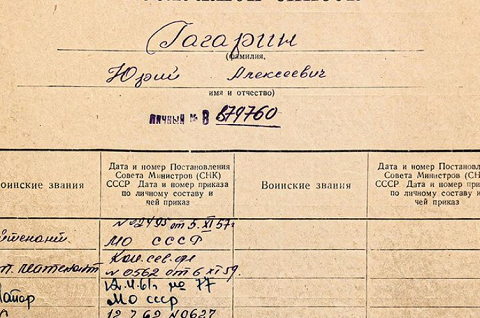 Гагарин
(фамилия,
Юрий Алексеевич
имя и отчество)
ЛИЧНЫЙ № В 879760
Дата и номер Постановления
Совета Министров (СНК)
СССР Дата и номер приказа
по личному составу и
чей приказ
Воинские звания
Дата и номер Постановления
Совета Министров (СНК)
СССР Дата и номер
по личному составу
чей приказ
оинские звания
№ 02495 от 5.XI 57г
МО СССР
Ком. сев. фл
№ 0562 от 6 XI 59.
12.4.61г. № 77
МО ссср
12.7.62 № 0627